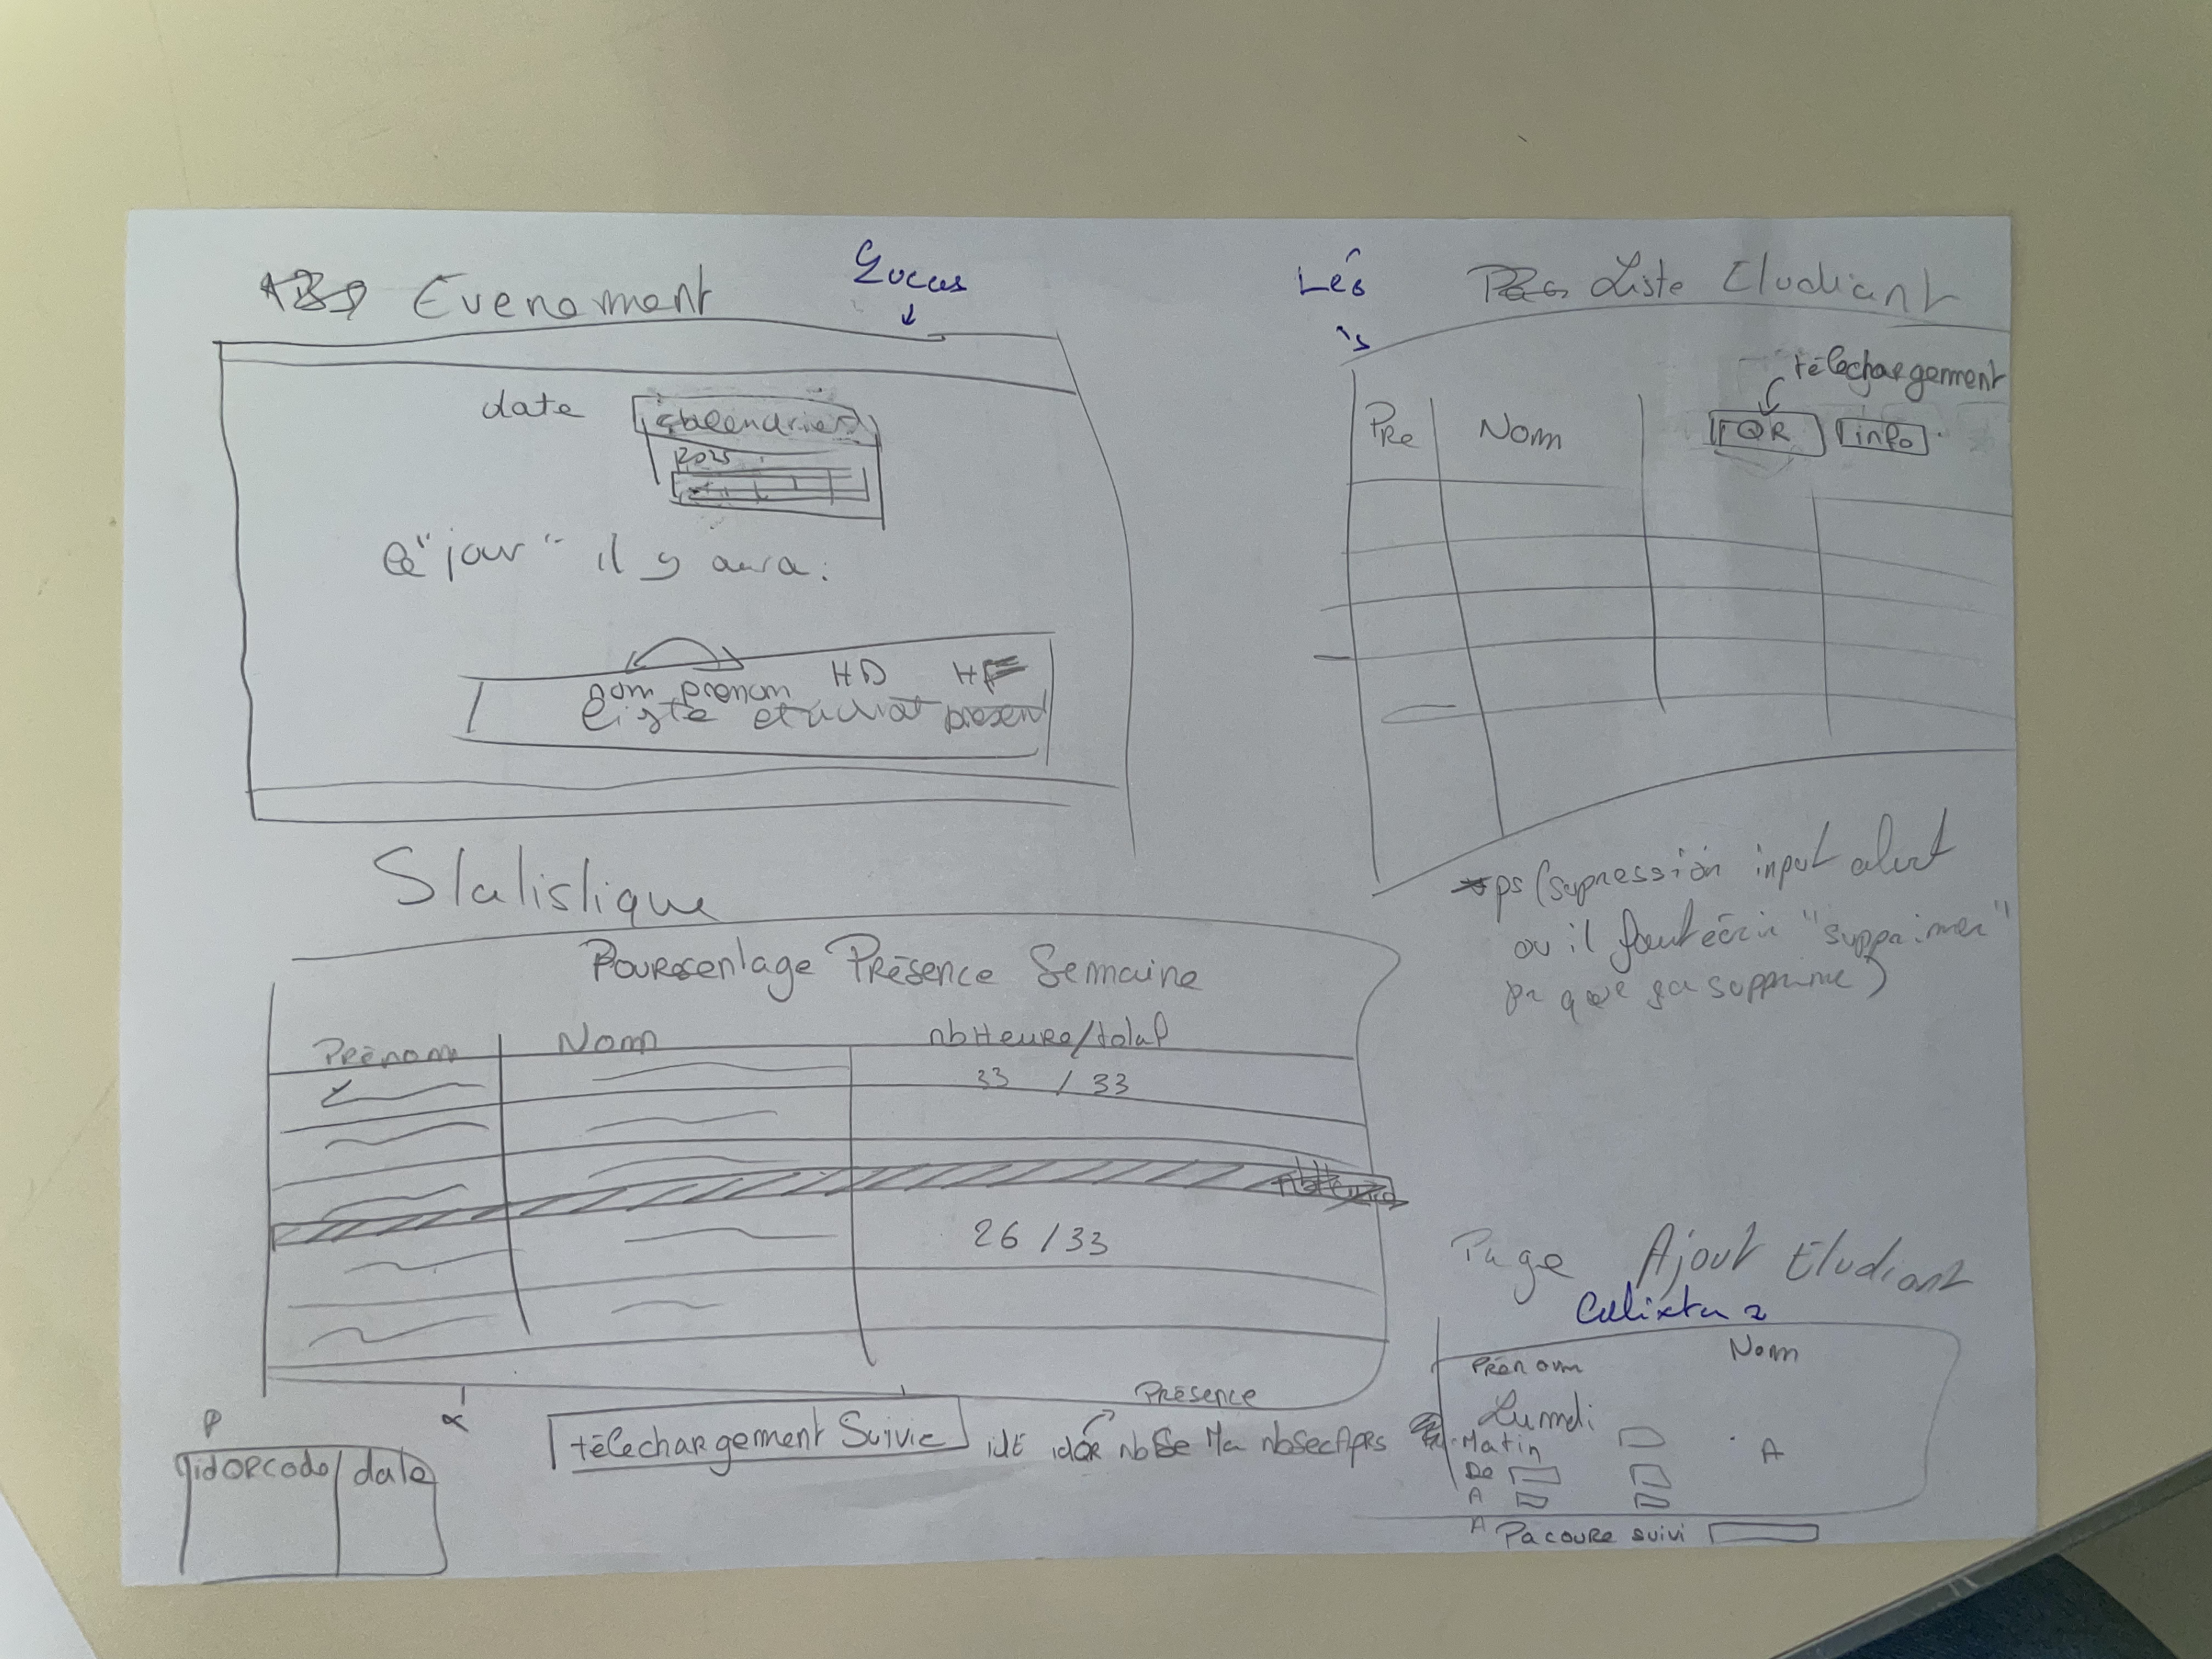 Evenement
Lucas
date
calendrier
2025
Ce "jour" il y aura:
nom prenom HD HF
liste etudiant present
Léo
Liste Etudiant
téléchargement
Pre Nom QR info
ps (supression input alert
ou il faut écrir "supprimer"
pr que ça supprime)
Statistique
Pourcentage Présence Semaine
Prénom Nom nbHeure/total
33 / 33
26 / 33
téléchargement Suivie
Présence
idE idQR nbSe Ma nbSecAprs
P
idQRcode date
Page Ajout Etudiant
Prénom Nom
Lundi
Matin A
De
A
A
Pacoure suivi